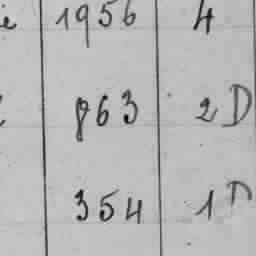 1956 4
863 2D
354 1D